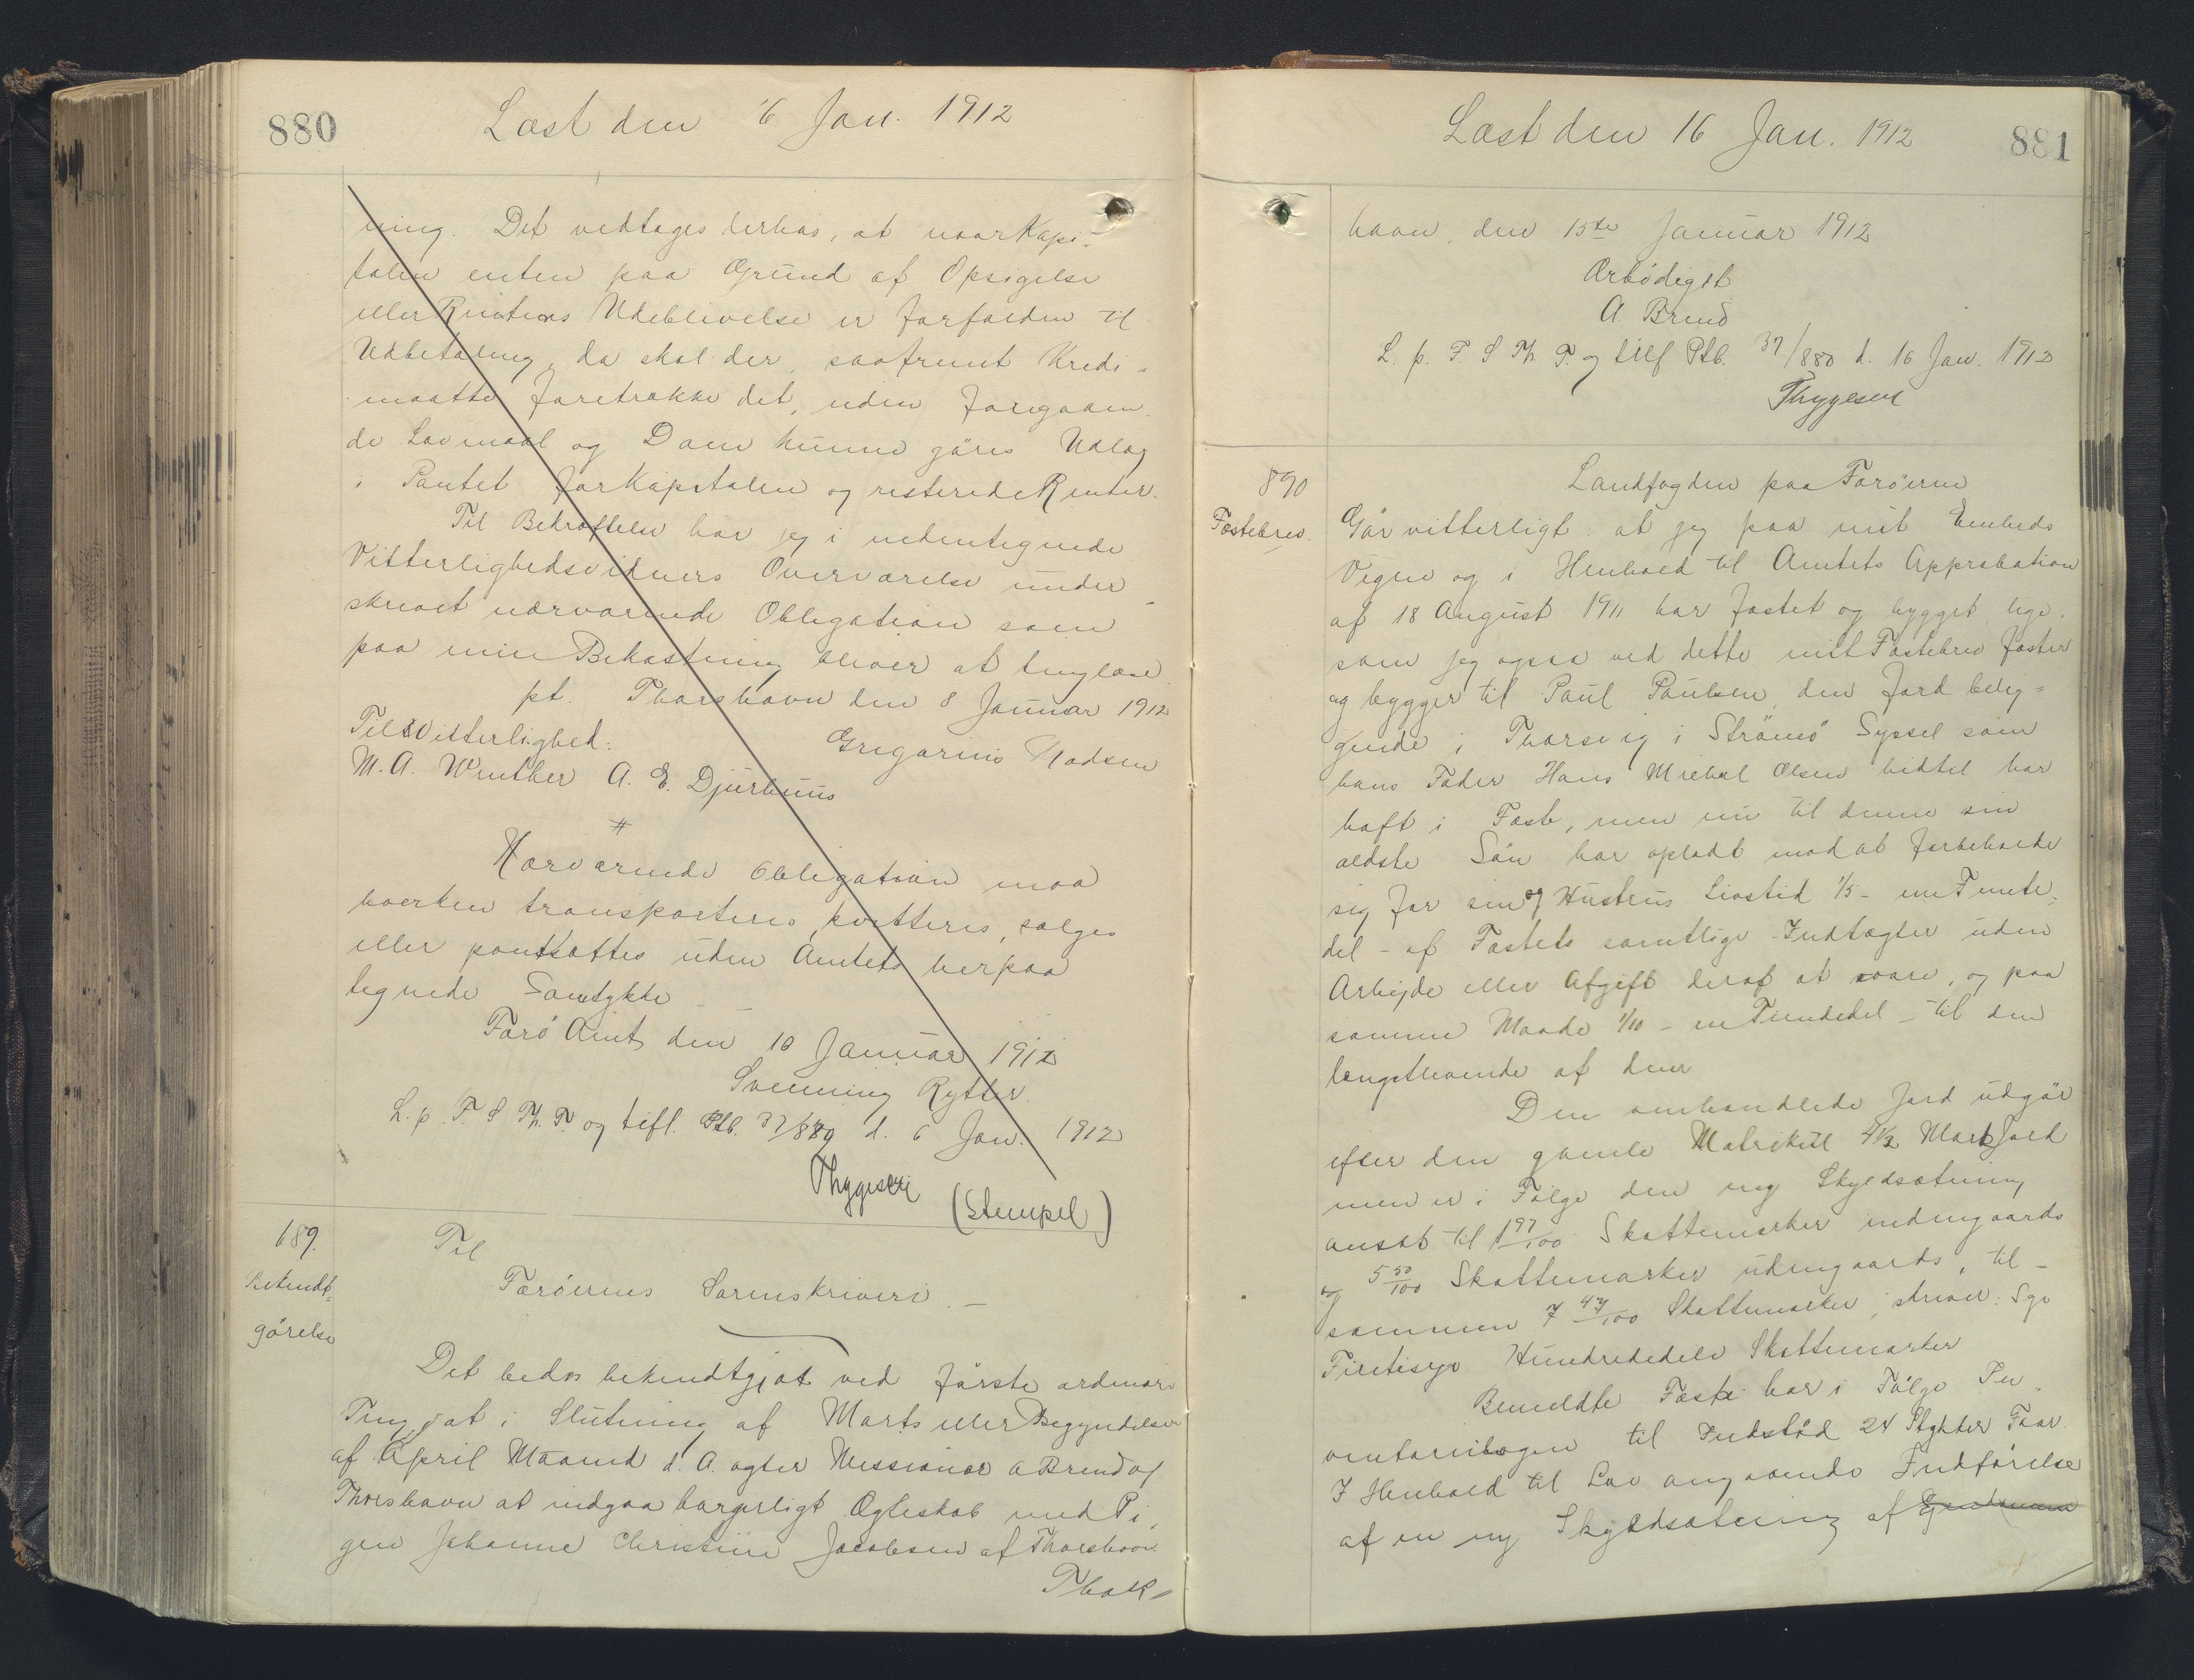 880
Læst den 16 Jan. 1912
ning. Det vedtages derhos, at naar Kapi-
talen enten paa Grund af Opsigelse
eller Renternes Udeblivelse er forfalden til
Udbetaling, da skal der, saafremt Kredi-
maatte foretrække det, uden foregaaen-
de Lovmaal og Dom kunne göres Udlæg
i Pantet for Kapitalen og resterede Renter.
Til Bekræftelse har jeg i undertegnede
Vitterlighedsvidners Overværelse under-
skrevet nærværende Obligation som
paa min Bekostning bliver at tinglæse.
pt. Thorshavn den 8 Januar 1912
Til Vitterlighed: Gregorius Madsen
M. A. Winther A. E. Djurhuus
#
Nærværende Obligation maa
hverken transporteres, kvitteres, sælges
eller pantsættes uden Amtets herpaa
tegnede Samtykke
Færö Amt, den 10 Januar 1912
Svenning Rytter.
L. p. F. S. Th. P. og tilf. Ptb. 37/889 d. 16 Jan. 1912
Thygesen
(Stempel)
189.
Bekendt-
görelse
Til
Færöernes Sorenskriveri. –
Det bedes bekendtgjort ved förste ordinære
Ting, at i Slutning af Marts eller Begyndelsen
af April Maaned d. A. agter Missionær A Brend af
Thorshavn at indgaa borgerligt Ægteskab med Pi-
gen Johanne Christine Jacobsen af Thorshavn.
Thors-
Læst den 16 Jan. 1912
881
havn, den 15de Januar 1912
Ærbödigst
A. Brend
L. p. F. S Th. P. og tilf Ptb. 37/880 d. 16 Jan. 1912
Thygesen
890
Fæstebrev.
Landfogden paa Færöerne
Gör vitterligt: at jeg paa mit Embeds
Vegne og i Henhold til Amtets Approbation
af 18 August 1911 har fæstet og bygget lige-
som jeg ogsaa ved dette mit Fæstebrev fæster
og bygger til Paul Paulsen, den Jord belig-
gende i Thorsvig i Strömö Syssel som
hans Fader Hans Michal Olsen hidtil har
haft i Fæste, men nu til denne sin
ældste Sön har opladt mod at forbeholde
sig for sin og Hustrus Livstid 1/5 - en Femte-
del - af Fæstets samtlige Indtægter uden
Arbejde eller Afgift deraf at svare, og paa
samme Maade 1/10 - en Tiendedel - til den
længstlevende af dem
Den omhandlede Jord udgör
efter den gamle Matrikul 4 1/2 Mark Jord
men er i Fölge den ny Skyldsætning
ansat til 1 97/100 Skattemarker indengaards
og 5 50/100 Skattemarker udengaards, til-
sammen 7 47/100 Skattemarker, skriver: Syv
Firetisyv Hundrededele Skattemarker
Bemeldte Fæste har i Fölge In-
ventarielogen til Indstöd 24 Stykker Faar.
I Henhold til Lov angaaende Indförelse
af en ny Skyldsætning af Ejendomme